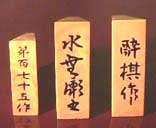 第百七十五作
水無瀬書
酔棋作